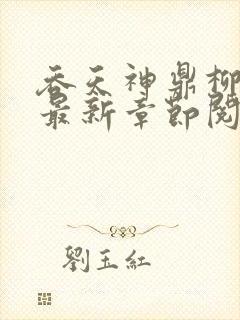 吞天神鼎柳
最新章節閱
劉玉紅